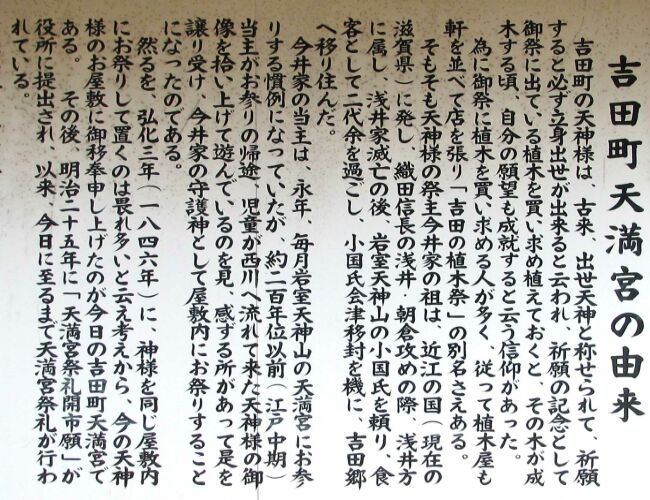 吉田町天満宮の由来
吉田町の天神様は、古来、出世天神と称せられて、祈願
すると必ず立身出世が出来ると云われ、祈願の記念として
御祭に出ている植木を買い求め植えておくと、その木が成
木する頃、自分の願望も成就すると云う信仰があった。
為に御祭に植木を買い求める人が多く、従って植木屋も
軒を並べて店を張り「吉田の植木祭」の別名さえある。
そもそも天神様の祭主今井家の祖は、近江の国(現在の
滋賀県)に発し、織田信長の浅井・朝倉攻めの際、浅井方
に属し、浅井家滅亡の後、岩室天神山の小国氏を頼り、食
客として二代余を過ごし、小国氏会津移封を機に、吉田郷
へ移り住んだ。
今井家の当主は、永年、毎月岩室天神山の天満宮にお参
りする慣例になっていたが、約二百年位以前(江戸中期)
当主がお参りの帰途、児童が西川へ流れて来た天神様の御
像を拾い上げて遊んでいるのを見、感ずる所があって是を
譲り受け、今井家の守護神として屋敷内にお祭りすること
になったのである。
然るを、弘化三年(一八四六年)に、神様を同じ屋敷内
にお祭りして置くのは畏れ多いと云え考えから、今の天神
様のお屋敷に御移奉申し上げたのが今日の吉田町天満宮で
ある。 その後、明治二十五年に「天満宮祭礼開市願」が
役所に提出され、以来、今日に至るまで天満宮祭礼が行わ
れている。